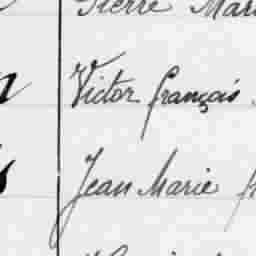 Pierre Mari
Victor françois
Jean Marie